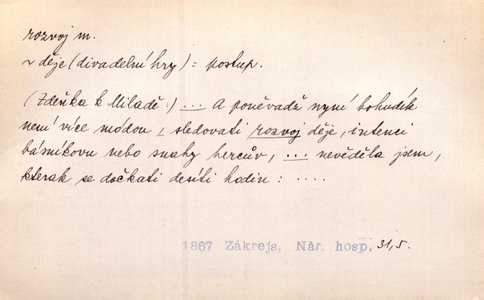 rozvoj m.
~ děje (divadelní hry) = postup.
(Zdeňka k Miladě:) ... A poněvadž nyní bohudík
není více módou, sledovati rozvoj děje, intenci
básníkovu nebo snahy hercův, ... nevěděla jsem,
kterak se dočkati desíti hodin: ....
1867 Zákrejs. Nár. hosp. 31,5.